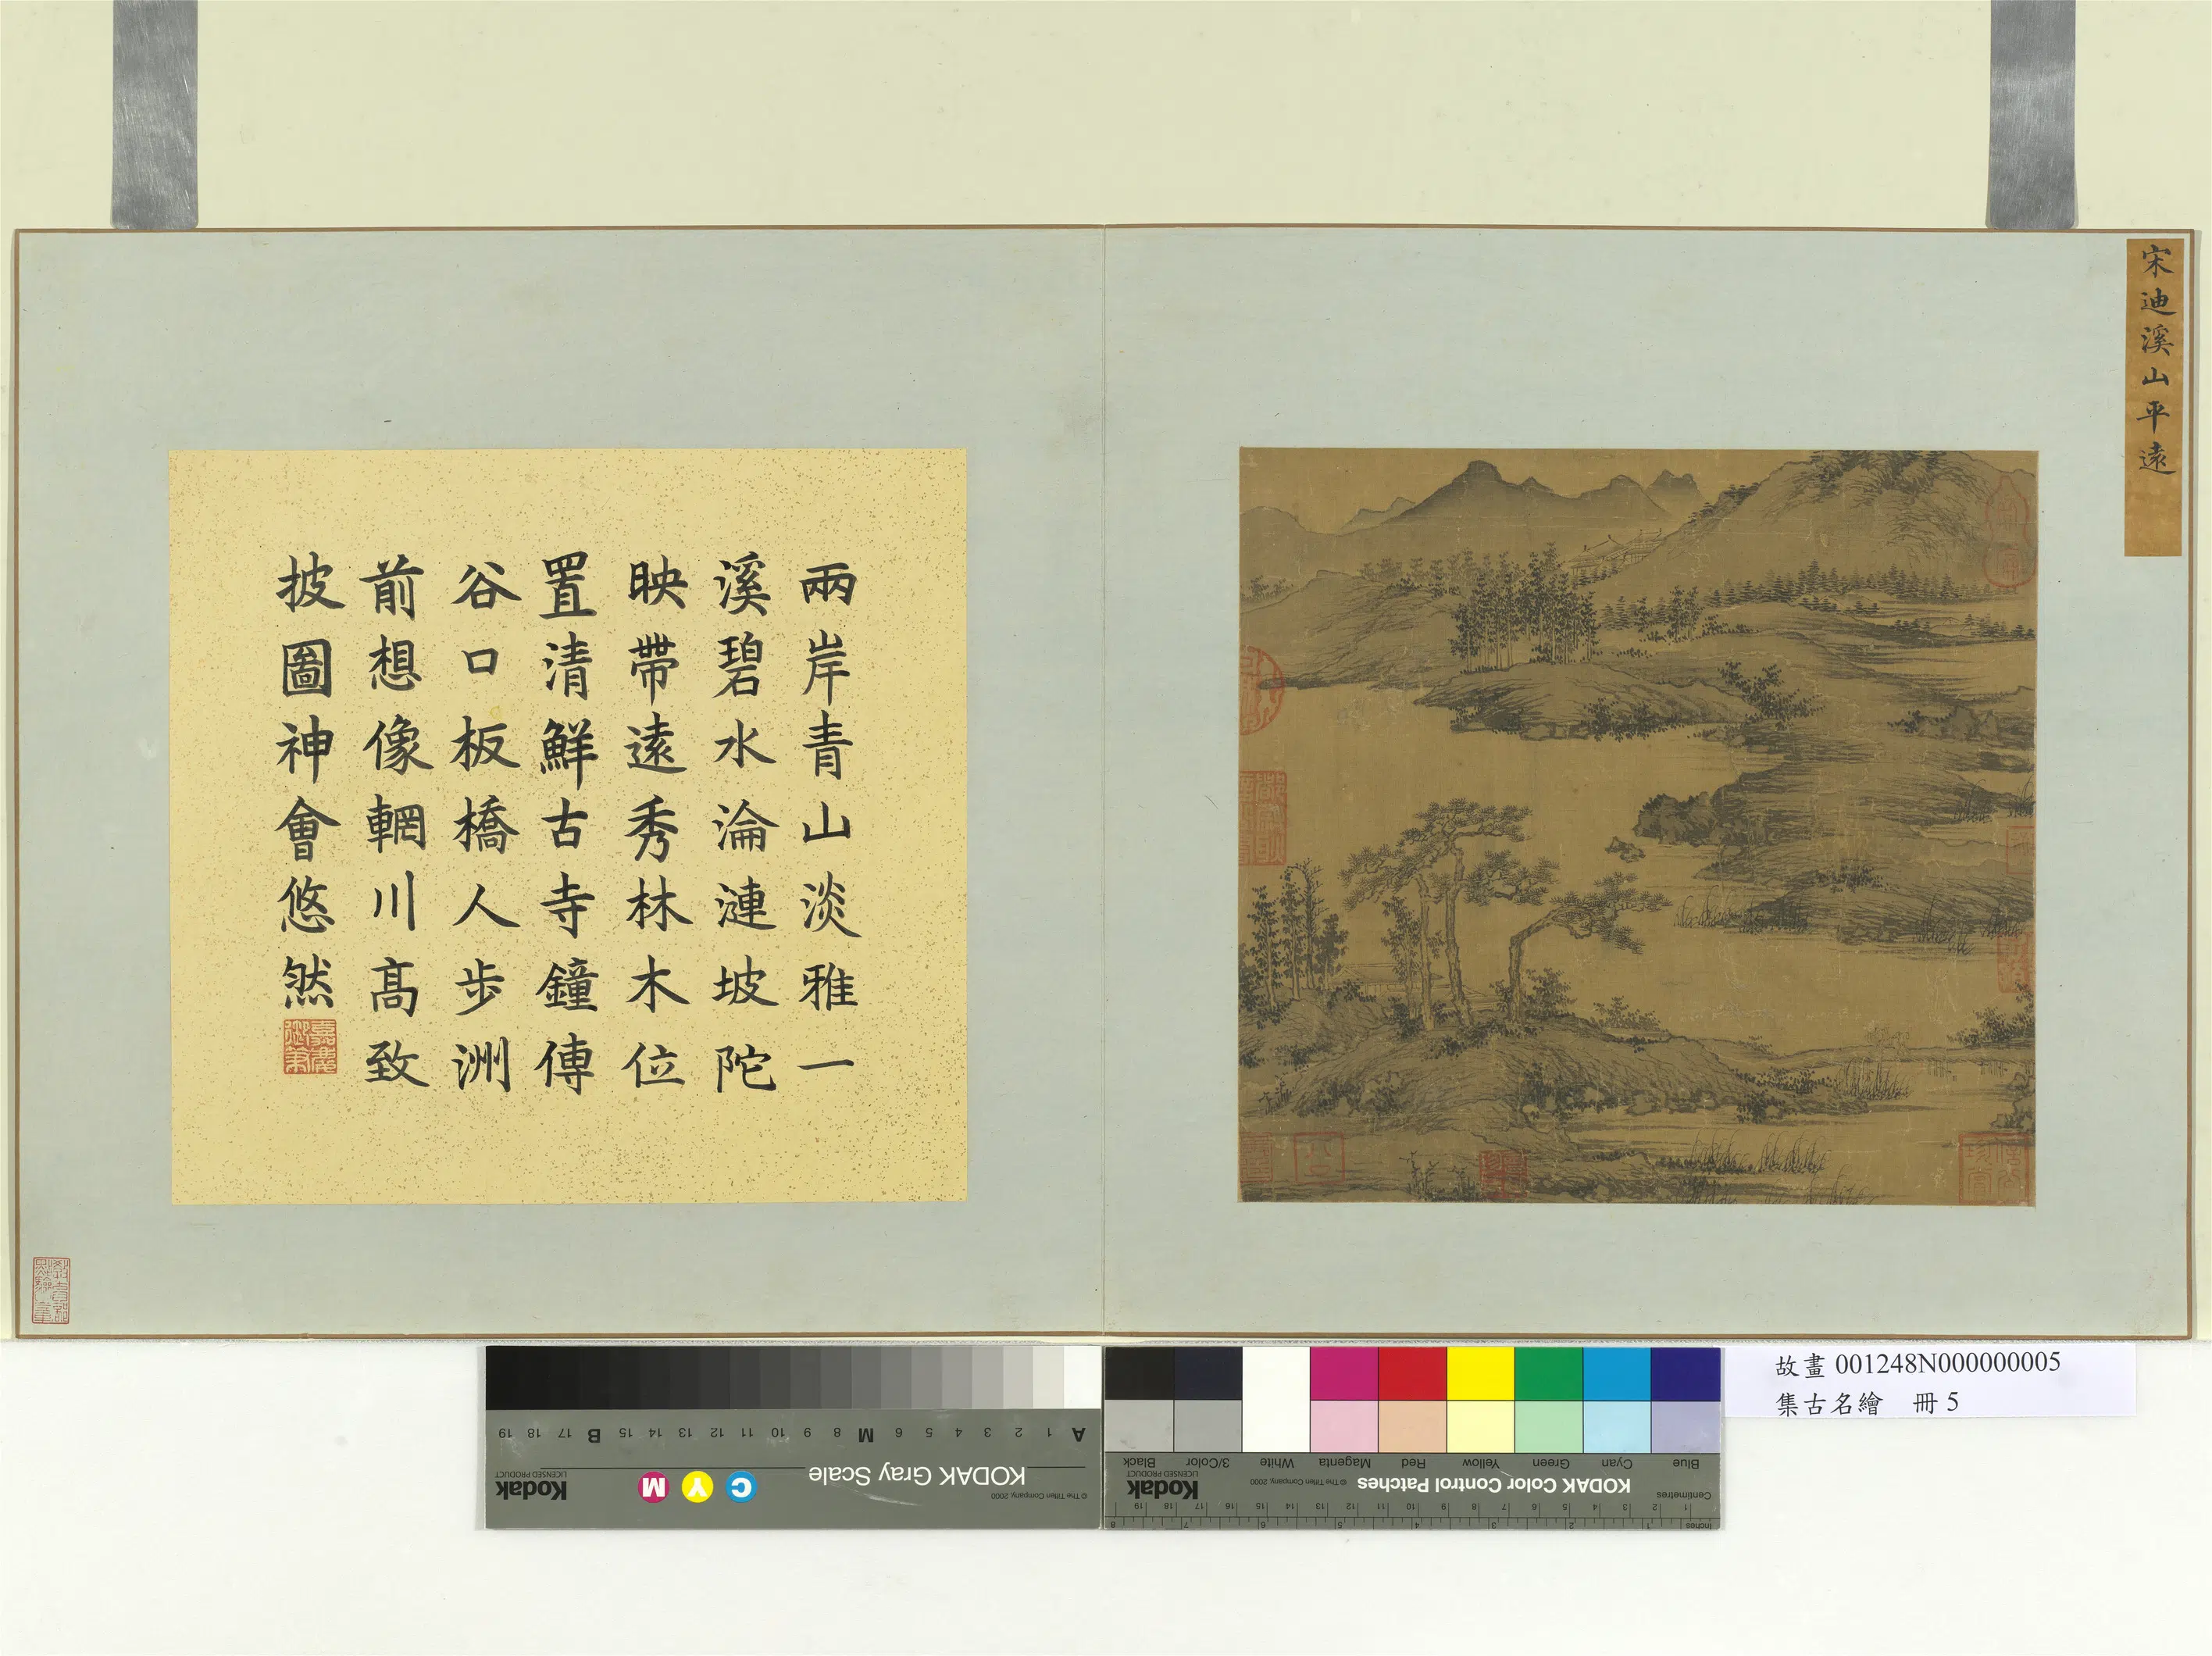 宋迪溪山平遠
兩岸青山淡雅一
溪碧水淪漣坡陀
映帶遠秀林木位
置清鮮古寺鐘傳
谷口板橋人步洲
前想像輞川高致
披圖神會悠然
嘉慶
御筆
故畫 001248N000000005
集古名繪 冊 5
A 1 2 3 4 5 6 M 8 9 10 11 12 13 14 15 B 17 18 19
© The Tiffen Company, 2000
KODAK Gray Scale
C Y M
Kodak
LICENSED PRODUCT
Blue Cyan Green Yellow Red Magenta White 3/Color Black
Centimetres
KODAK Color Control Patches
© The Tiffen Company, 2000
Kodak
LICENSED PRODUCT
1 2 3 4 5 6 7 8 9 10 11 12 13 14 15 16 17 18 19
Inches 1 2 3 4 5 6 7 8